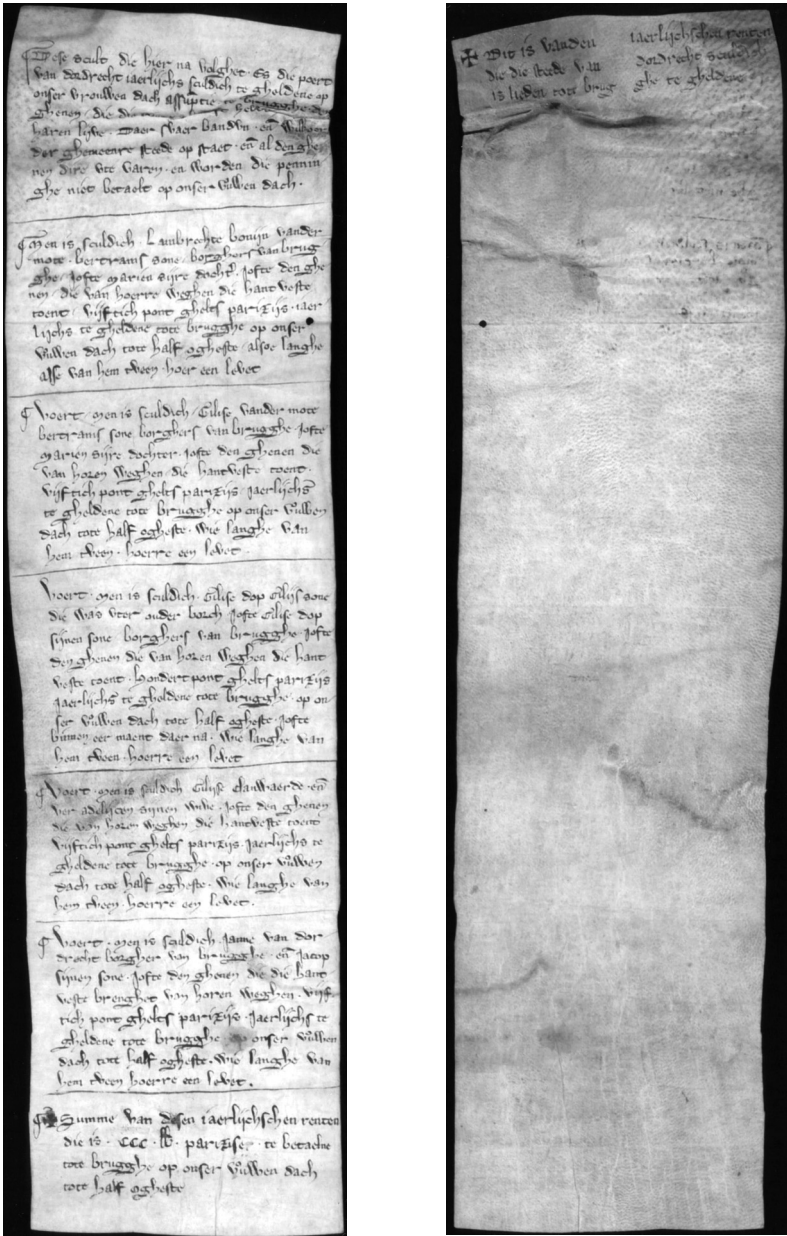 Dese scult die hier na volghet. Es die poert
van dordrecht iaerlijchs sculdich te gheldene op
onser vrouwen dach assumptie te brugghe den
ghenen, die
haren lijve. Daer swaer bandun. en̄
der ghemeenre stede op staet. en̄ al den ghe
nen dire vte varen. en worden die pennin
ghe niet betaelt op onser vrouwen dach.
¶ Men is sculdich. Lambrechte bonijn vander
mote. bertrams sone. borghers van brug
ghe. Jofte marien sijre docht'. Jofte den ghe
nen. die van hoerre weghen die hantveste
toent. vijftich pont ghelts parizijs. iaer
lijchs te gheldene tote brugghe op onser
vrouwen dach tote half ogheste. alsoe langhe
alse van hem tween. hoer een levet
¶ Voert. Men is sculdich. Gilise vander mote
bertrams sone borghers van brugghe. Jofte
marien sijre dochter. Jofte den ghenen die
van horen weghen. die hantveste toent.
vijftich pont ghelts parizijs. Jaerlijchs
te gheldene tote brugghe op onser vrouwen
dach tote half ogheste. wie langhe van
hem tween. hoerre een levet.
Voert. Men is sculdich. Gilise dop Gilijs sone
die was vter onder borch Jofte Gilise dop
sijnen sone. borghers van brugghe. Jofte
den ghenen die van horen weghen die hant
veste toent. Hondert pont ghelts parizijs
Jaerlijchs te gheldene tote brugghe. op on
ser vrouwen dach tote half ogheste. Jofte
binnen eere maent daer na. wie langhe van
hem tween. hoerre een levet
¶ Voert. Men is sculdich Gilise Clauwaerde. en̄
ver adelijcen sijnen wive. Jofte den ghenen
die van horen weghen die hantveste toent
vijftich pont ghelts parizijs. Jaerlijchs te
gheldene tote brugghe. op onser vrouwen
dach tote half ogheste. wie langhe van
hem tween. hoerre een levet.
¶ Voert. Men is sculdich. Janne van dor
drecht borgher van brugghe. en̄ Jacop
sijnen sone. Jofte den ghenen die die hant
veste brenghet van horen weghen. vijf
tich pont ghelts parizijs. Jaerlijchs te
gheldene tote brugghe op onser vrouwen
dach tote half ogheste. wie langhe van
hem tween hoerre een levet.
¶ Summe van desen iaerlijchschen renten
die is. CCC. lb. parizise. te betaelne
tote brugghe op onser vrouwen dach
tote half ogheste
✠ Dit is vanden iaerlijchschen renten
die die stede van dordrecht sculdich
is lieden tote brugghe te gheldene